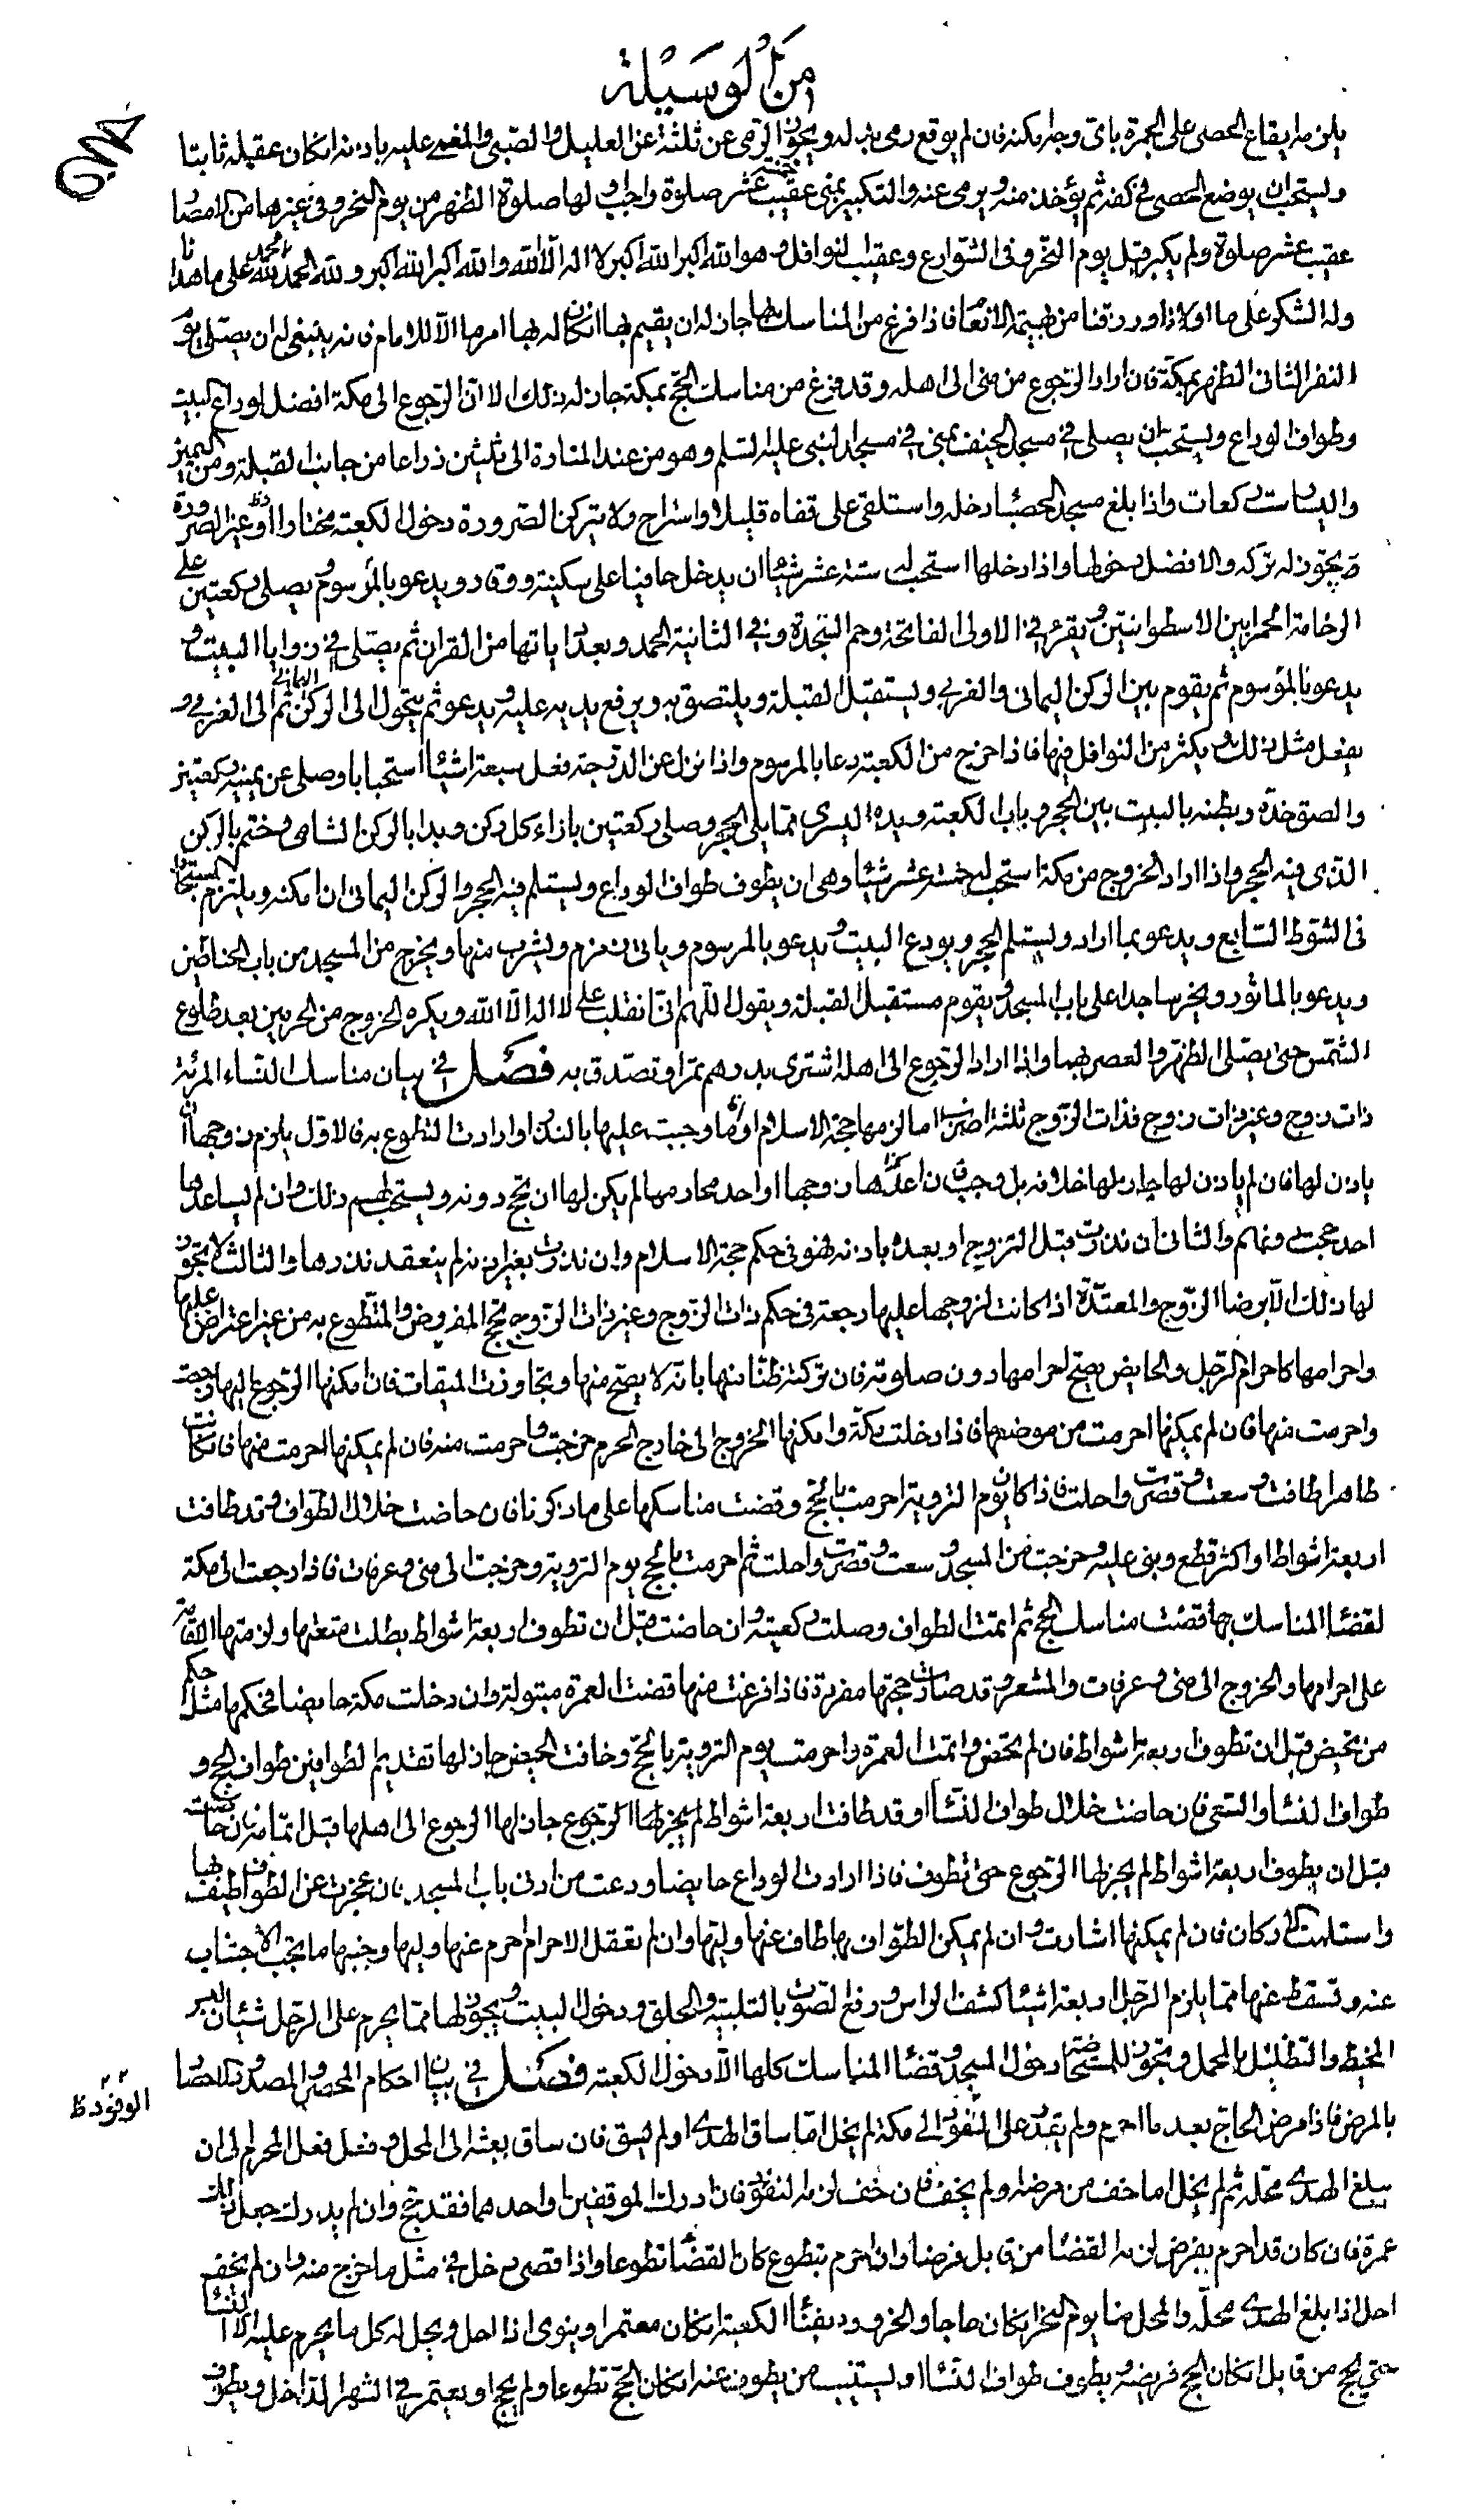 من الوسيلة
يلزمه ايقاع الحصى على الجمرة باى وجه امكنه فان لم يوقع رمى بدله ويجوز الرمى عن ثلثة عن العليل والصبى والمغمى عليه باذنه ان كان عقله ثابتا
ويستحب ان يوضع الحصى فى كفه ثم يؤخذ منه ويرمى عنه والتكبير بمنى عقيب خمسة عشر صلوة واجب اولها صلوة الظهر من يوم النحر وفى غيرها من الامصار
عقيب عشر صلوة ولم يكبر قبل يوم النحر وفى الشوارع وعقيب النوافل وهو الله اكبر الله اكبر لا اله الا الله والله اكبر الله اكبر ولله الحمد الحمد لله على ما هدانا
وله الشكر على ما اولانا ورزقنا من بهيمة الانعام فاذا فرغ من المناسك بها جاز له ان يقيم بها ان كان له بها امر ما الا للامام فانه ينبغى له ان يصلى يوم
النفر الثانى الظهر بمكة فان اراد الرجوع من منى الى اهله وقد فرغ من مناسك الحج بمكة جاز له ذلك الا ان الرجوع الى مكة افضل لوداع البيت
وطواف الوداع ويستحب ان يصلى فى مسجد الخيف بمنى فى مسجد النبى عليه السلم وهو من عند المنارة الى ثلثين ذراعا من جانب القبلة ومن اليمين
واليسار ست ركعات واذا بلغ مسجد الحصباء دخله واستلقى على قفاه قليلا واستراح ولا يتركن الصرورة دخول الكعبة مختارا وغير الصرورة
يجوز له تركه والافضل دخولها واذا دخلها استحب له ستة عشر شيئا ان يدخل حافيا على سكينة ووقار ويدعو بالمرسوم ويصلى ركعتين على
الرخامة الحمراء بين الاسطوانتين ويقرء فى الاولى الفاتحة وحم السجدة وفى الثانية الحمد وبعدد اياتها من القران ثم يصلى فى زوايا البيت و
يدعو بالمرسوم ثم يقوم بين الركن اليمانى والغربى ويستقبل القبلة ويلتصق به ويرفع يديه عليه ويدعو ثم يتحول الى الركن اليمانى ثم الى الغربى و
يفعل مثل ذلك ويكثر من النوافل فيها فاذا خرج من الكعبة دعا بالمرسوم واذا نزل عن الدرجة فعل سبعة اشياء استحبابا وصلى عن يمينه ركعتين
والصق خده وبطنه بالبيت بين الحجر وباب الكعبة ويده اليسرى مما يلى الحجر وصلى ركعتين بازاء كل ركن وبدا بالركن الشامى وختم بالركن
الذى فيه الحجر واذا اراد الخروج من مكة استحب له خمسة عشر شيئا وهى ان يطوف طواف الوداع ويستلم فيه الحجر والركن اليمانى ان امكنه ويلتزم المستجار
فى الشوط السابع ويدعو بما اراد ويستلم الحجر ويودع البيت ويدعو بالمرسوم وياتى زمزم ويشرب منها ويخرج من المسجد من باب الحناطين
ويدعو بالماثور ويخر ساجدا على باب المسجد ويقوم مستقبل القبلة ويقول اللهم انى انقلب على لا اله الا الله ويكره الخروج من الحرمين بعد طلوع
الشمس حتى يصلى الظهر والعصر بهما واذا اراد الرجوع الى اهله اشترى بدرهم تمرا وتصدق به فصل فى بيان مناسك النساء المرئة
ذات زوج وغير ذات زوج فذات الزوج ثلثة اضرب اما لزمها حجة الاسلام او ما وجبت عليها بالنذر او ارادت التطوع به فالاول يلزم زوجها ان
ياذن لها فان لم ياذن لها جاز لها خلافه بل وجب فان ساعدها زوجها او احد محارمها لم يكن لها ان تحج دونه ويستحب لهم ذلك وان لم يساعدها
احد حجت دونهم والثانى ان نذرت قبل التزويج او بعده باذنه فهو فى حكم حجة الاسلام وان نذرت بغير اذنه لم ينعقد نذرها والثالث لا يجوز
لها ذلك الا برضا الزوج والمعتدة اذا كانت لزوجها عليها رجعة فى حكم ذات الزوج وغير ذات الزوج تحج المفروض والمتطوع به من غير اعتراض عليها
واحرامها كاحرام الرجل والحايض يصح احرامها دون صلوته فان تركته ظنا منها بانه لا يصح منها وتجاوزت الميقات فان امكنها الرجوع اليها رجعت
واحرمت منها فان لم يمكنها احرمت من موضعها فاذا دخلت مكة وامكنها الخروج الى خارج الحرم خرجت واحرمت منه فان لم يمكنها احرمت منها فان كانت
طاهرا طافت وسعت وقصرت واحلت فاذا كان يوم التروية احرمت بالحج وقضت مناسكها على ما ذكرنا فان حاضت خلال الطواف وقد طافت
اربعة اشواط او اكثر قطع وبنى عليه وخرجت من المسجد وسعت وقصرت واحلت ثم احرمت بالحج يوم التروية وخرجت الى منى وعرفات فاذا رجعت الى مكة
لقضاء المناسك بها قضت مناسك الحج ثم اتمت الطواف وصلت ركعتيه وان حاضت قبل ان تطوف اربعة اشواط بطلت متعتها ولزمتها الاقامة
على احرامها والخروج الى منى وعرفات والمشعر وقد صارت حجتها مفردة فاذا فرغت منها قضت العمرة مبتولة وان دخلت مكة حايضا فحكمها مثل حكم
من تحيض قبل ان تطوف اربعة اشواط فان لم تحض واتمت العمرة واحرمت يوم التروية بالحج وخافت الحيض جاز لها تقديم الطوافين طواف الحج و
طواف النساء والسعى فان حاضت خلال طواف النساء وقد طافت اربعة اشواط لم يجز لها الرجوع جاز لها الرجوع الى اهلها قبل اتمامه فان حاضت
قبل ان يطوف اربعة اشواط لم يجز لها الرجوع حتى تطوف فاذا ارادت الوداع حايضا ودعت من ادنى باب المسجد فان عجزت عن الطواف طيف بها
واستلمت الاركان فان لم يمكنها اشارت وان لم يمكن الطواف بها طاف عنها وليها وان لم تعقل الاحرام احرم عنها وليها وجنبها ما يجب الاجتناب
عنه وتسقط عنها مما يلزم الرجل اربعة اشياء كشف الراس ورفع الصوت بالتلبية والحلق ودخول البيت ويجوز لها مما يحرم على الرجل شيئان لبس
المخيط والتظليل بالمحمل ويجوز للمستحاضة دخول المسجد وقضاء المناسك كلها الا دخول الكعبة فصل فى بيان احكام المحصر والمصدود الاحصار
بالمرض فاذا مرض الحاج بعد ما احرم ولم يقدر على النفوذ الى مكة لم يخل اما ساق الهدى او لم يسق فان ساق بعثه الى المحل وفعل فعل المحرم الى ان
يبلغ الهدى محله ثم لم يخل اما خف من مرضه ولم يخف فان خف لزمه النفوذ فان ادرك الموقفين او احدهما فقد حج وان لم يدرك جعل ذلك
عمرة فان كان قد احرم بفرض لزمه القضاء من قابل فرضا وان احرم بتطوع كان القضاء تطوعا واذا قضى دخل فى مثل ما خرج منه وان لم يخف
احل اذا بلغ الهدى محله والمحل منى يوم النحر ان كان حاجا والحزورة بفناء الكعبة ان كان معتمرا وينوى اذا احل ويحل له كل ما يحرم عليه الا النساء
حتى يحج من قابل ان كان الحج فريضة ويطوف طواف النساء او يستنيب من يطوف عنه ان كان الحج تطوعا ولم يحج او يعتمر فى الشهر الداخل ويطوف